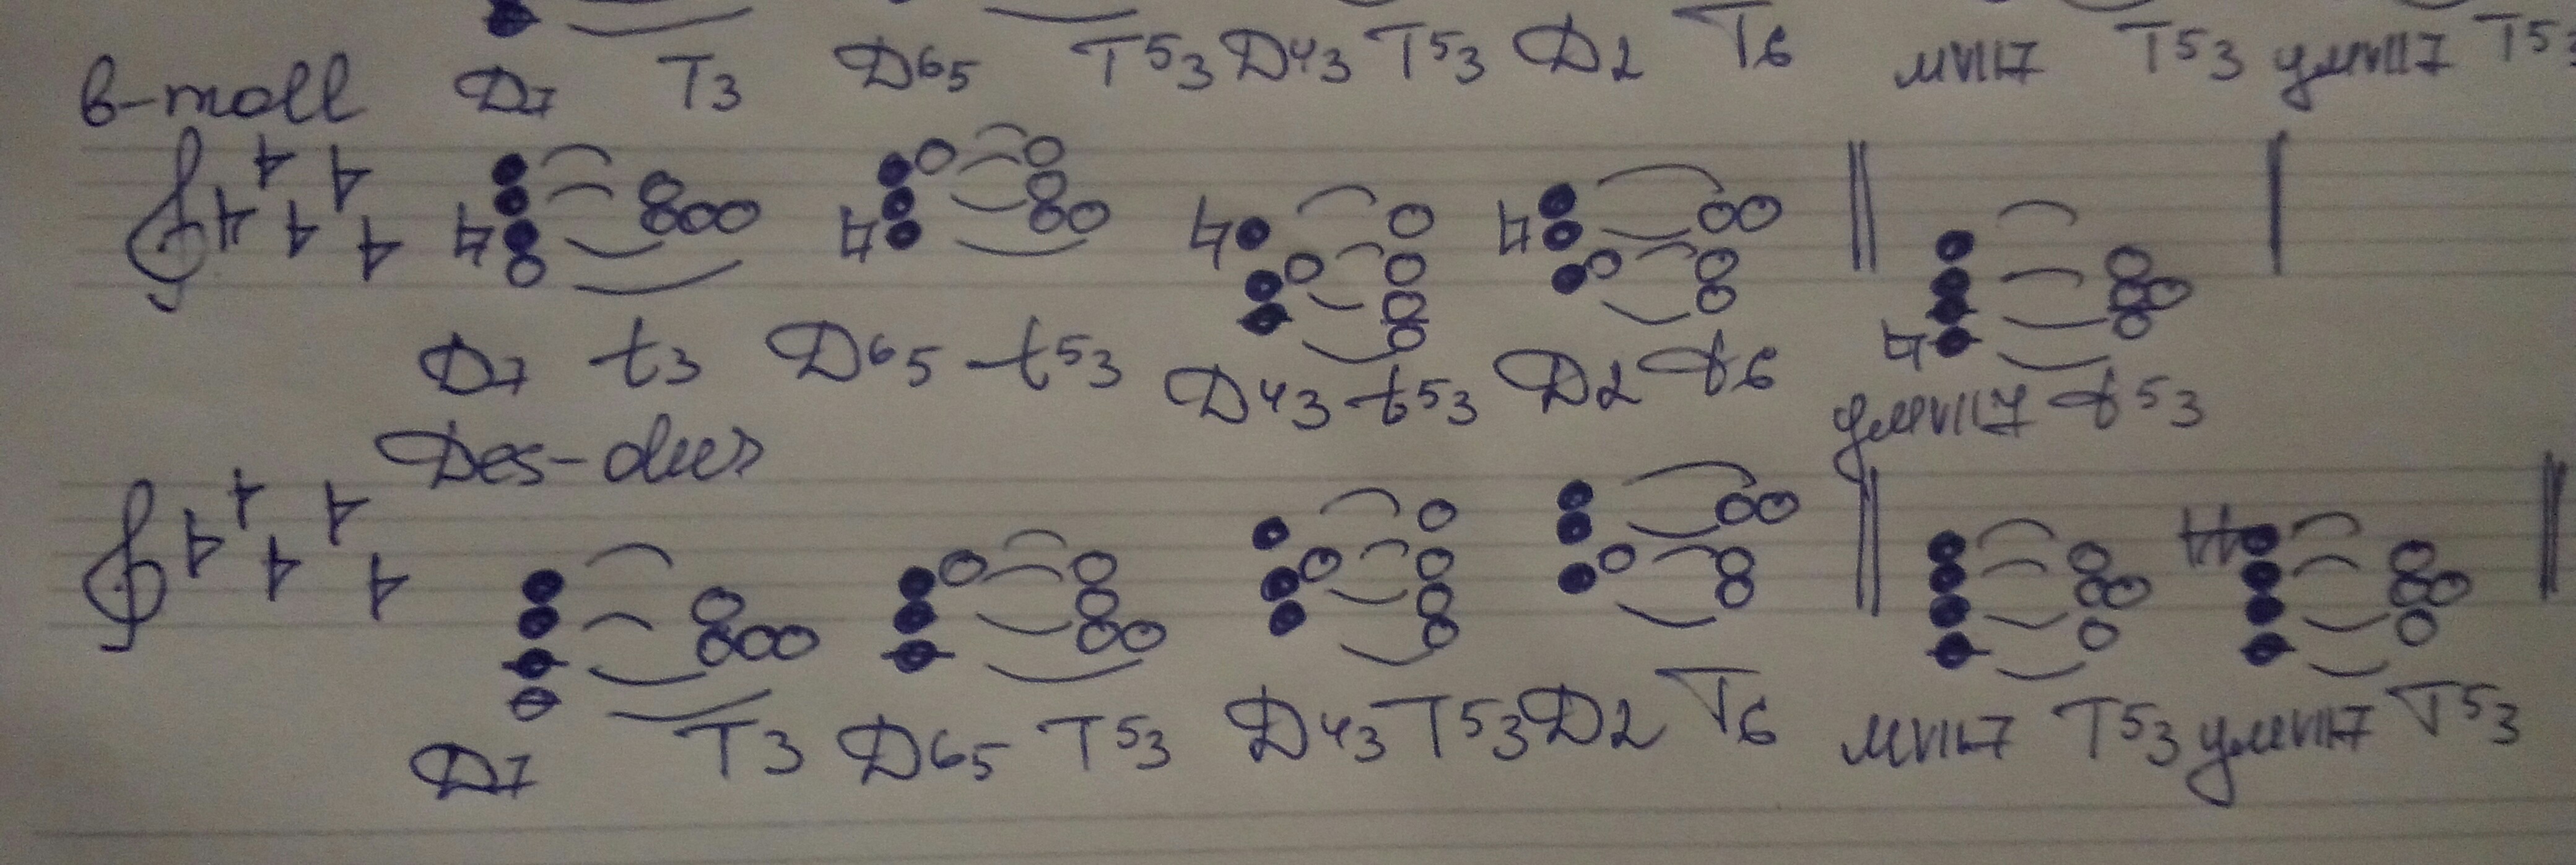 D7 T3 D65 T53 D43 T53 D2 T6 мVII7 T53 умVII7 T53
b-moll
D7 t3 D65 t53 D43 t53 D2 t6 умVII7 t53
Des-dur
D7 T3 D65 T53 D43 T53 D2 T6 мVII7 T53 умVII7 T53